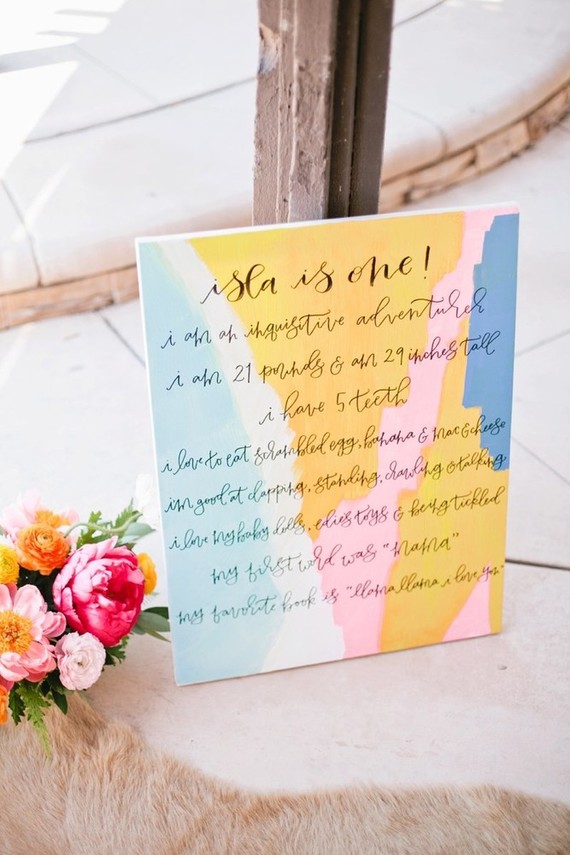 isla is one!
i am an inquisitive adventurer
i am 21 pounds & am 29 inches tall
i have 5 teeth
i love to eat scrambled egg, banana & mac & cheese
i'm good at clapping, standing, crawling & talking
i love my baby dolls, edie's toys & being tickled
my first word was "mama"
my favorite book is "llama llama i love you"